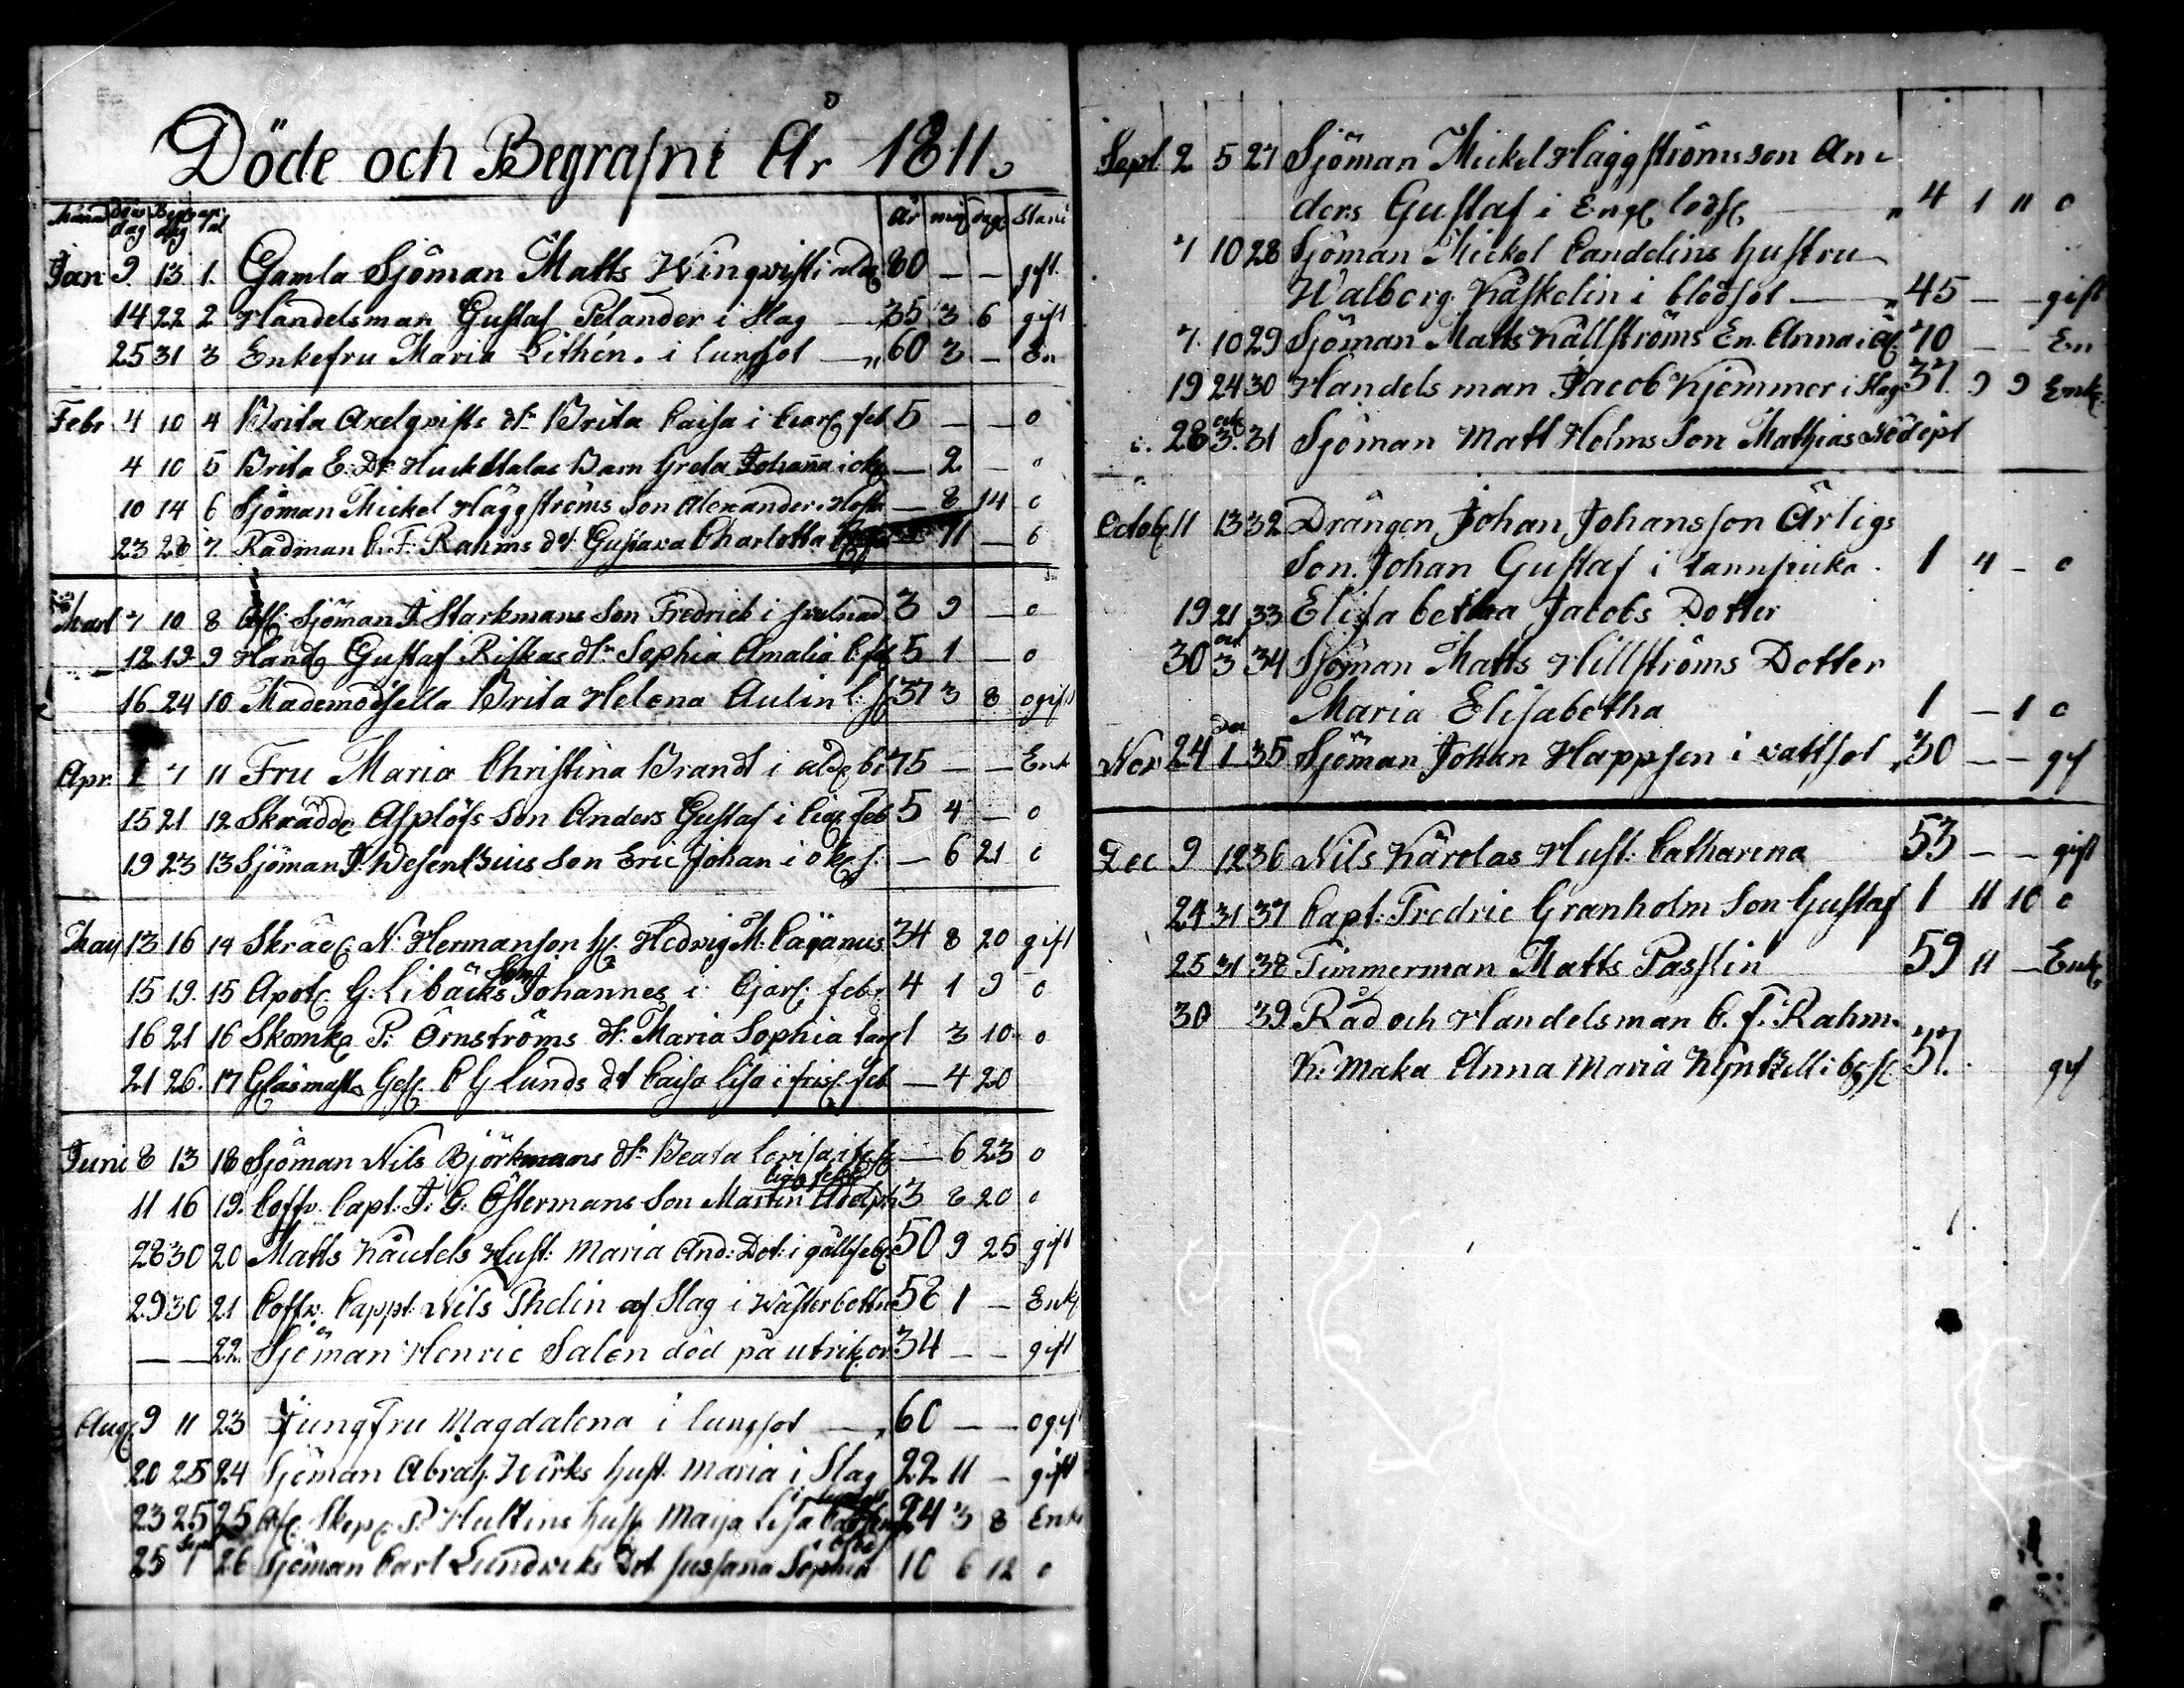 Döde och Begrafne År 1811.
Månad Döds dag Begr dag Antal År mån dag Stånd
Jan 9 13 1. Gamla Sjöman Matts Wingvist i åld 80 — — gift
14 22 2 Handelsman Gustaf Pelander i Slag — 35 3 6 gift
25 31 3 Enkefru Maria Lithén. i lungsot — 60 3 — En
Febr 4 10 4 Brita Axelqvists dr Brita Caisa i feb 5 — — o
4 10 5 Brita E: Dr Huckttalas Barn Greta Johanna i okg — 2 — o
10 14 6 Sjöman Mickel Häggströms Son Alexander i Host — 8 14 o
23 28 7. Rådman C. F: Rahms dr Gustava Charlotta 11 — o
Mart 7 10 8 Afl Sjöman J. Starkmans Son Fredrick i svulnad 3 9 — o
12 19 9 Hand Gustaf Riskas dr Sophia Amalia 5 1 — o
16 24 10 Mademoisella Brita Helena Aulin 37 3 8 ogift
Apr 1 7 11 Fru Maria Christina Brandt i åld 75 — — Enk
15 21 12 Skrädd Asplöfs Son Anders Gustaf i feb 5 4 — o
19 23 13 Sjöman J. Wesentzius Son Eric Johan i okg s. — 6 21 o
May 13 16 14 Skräd N: Hermanson H Hedvig M. Cajanus 34 8 20 gift
15 19. 15 Apot G: Libäcks Son Johannes i feb 4 1 9 o
16 21 16 Skomk P: Örnströms dr. Maria Sophia 1 3 10 o
21 26. 17 Glasmast Gesl C G Lunds dr Caisa Lisa i feb — 4 20
Juni 8 13 18 Sjöman Nils Björkmans dr Beata Lovisa i — 6 23 o
11 16 19. Coffv. Capt: J: G: Östermans Son Martin Adolph 3 8 20 o
28 30 20 Matts Käutels Hust: Maria And: Dot: i gallfeb 50 9 25 gift
29 30 21 Coffv. Cappt: Nils Thelin af Slag i Wästerbottn 58 1 — Enk
— — 22. Sjöman Henric Salen död på utrik or 34 — — gift
Aug 9 11 23 Jungfru Magdalena i lungsot — 60 — — ogift
20 25 24 Sjöman Abrah. Wirks hust. Maria i Slag 22 11 — gift
23 25 25 Afl. Skep P Hultins hust Maija Lisa 24 3 8 Enk
25 Sept 1 26 Sjöman Carl Lundviks Dot Sussana Sophia 10 6 12 o
Sept 2 5 27 Sjöman Mickel Häggströms son An-
ders Gustaf i Eng. — 4 1 11 o
7 10 28 Sjöman Mickel Candelins hustru
Walborg Kaskelin i blodsot — 45 — — gift
7 10 29 Sjöman Matts Källströms En. Anna i 70 — — En
19 24 30 Handelsman Jacob Kjemmer i Slag 37. 9 9 Enk
28 oct 3. 31 Sjöman Matt Holms Son Mathias Nöddöpt
Octob 11 13 32 Drängen Johan Johansson Ärligs
Son. Johan Gustaf i tannspricka . 1 4 — o
19 21 33 Elisabetha Jacobs Dotter
30 3 34 Sjöman Matts Hillströms Dotter
Maria Elisabetha 1 — 1 o
Nov 24 Dec 1 35 Sjöman Johan Happsen i vattsot 30 — — gif
Dec 9 12 36 Nils Kärolas Hust: Catharina 53 — — gift
24 31 37 Capt: Fredric Granholm Son Gustaf 1 11 10 o
25 31 38 Timmerman Matts Passlin 59 11 — Enk
30 39 Råd och Handelsman C. F: Rahm.
K: Maka Anna Maria Kyntzell i 57. gif